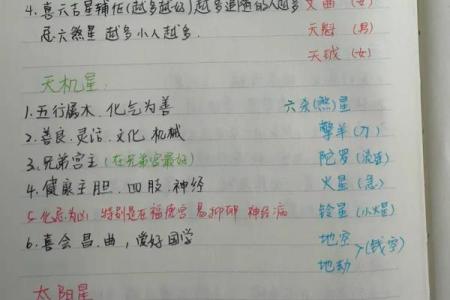 4. 喜六吉星辅佐(越多越好)越多追随的人越多 文曲 (女)
忌六煞星 越多小人越多. 天魁 (男)
天钺 (女)
天机星.
1. 五行属木. 化气为善 六杀(煞)星
2. 善良. 灵活. 文化. 机械 擎羊(刀)
3. 兄弟宫主 (在兄弟宫最好) 陀罗
4. 健康主胆. 四肢. 神经 火星 (急)
5. 化忌为凶 特别是在福德宫 易抑郁 神经病 铃星 (小火星)
6. 喜会昌. 曲, 爱好国学 地空 (钱空)
地劫
太阳星